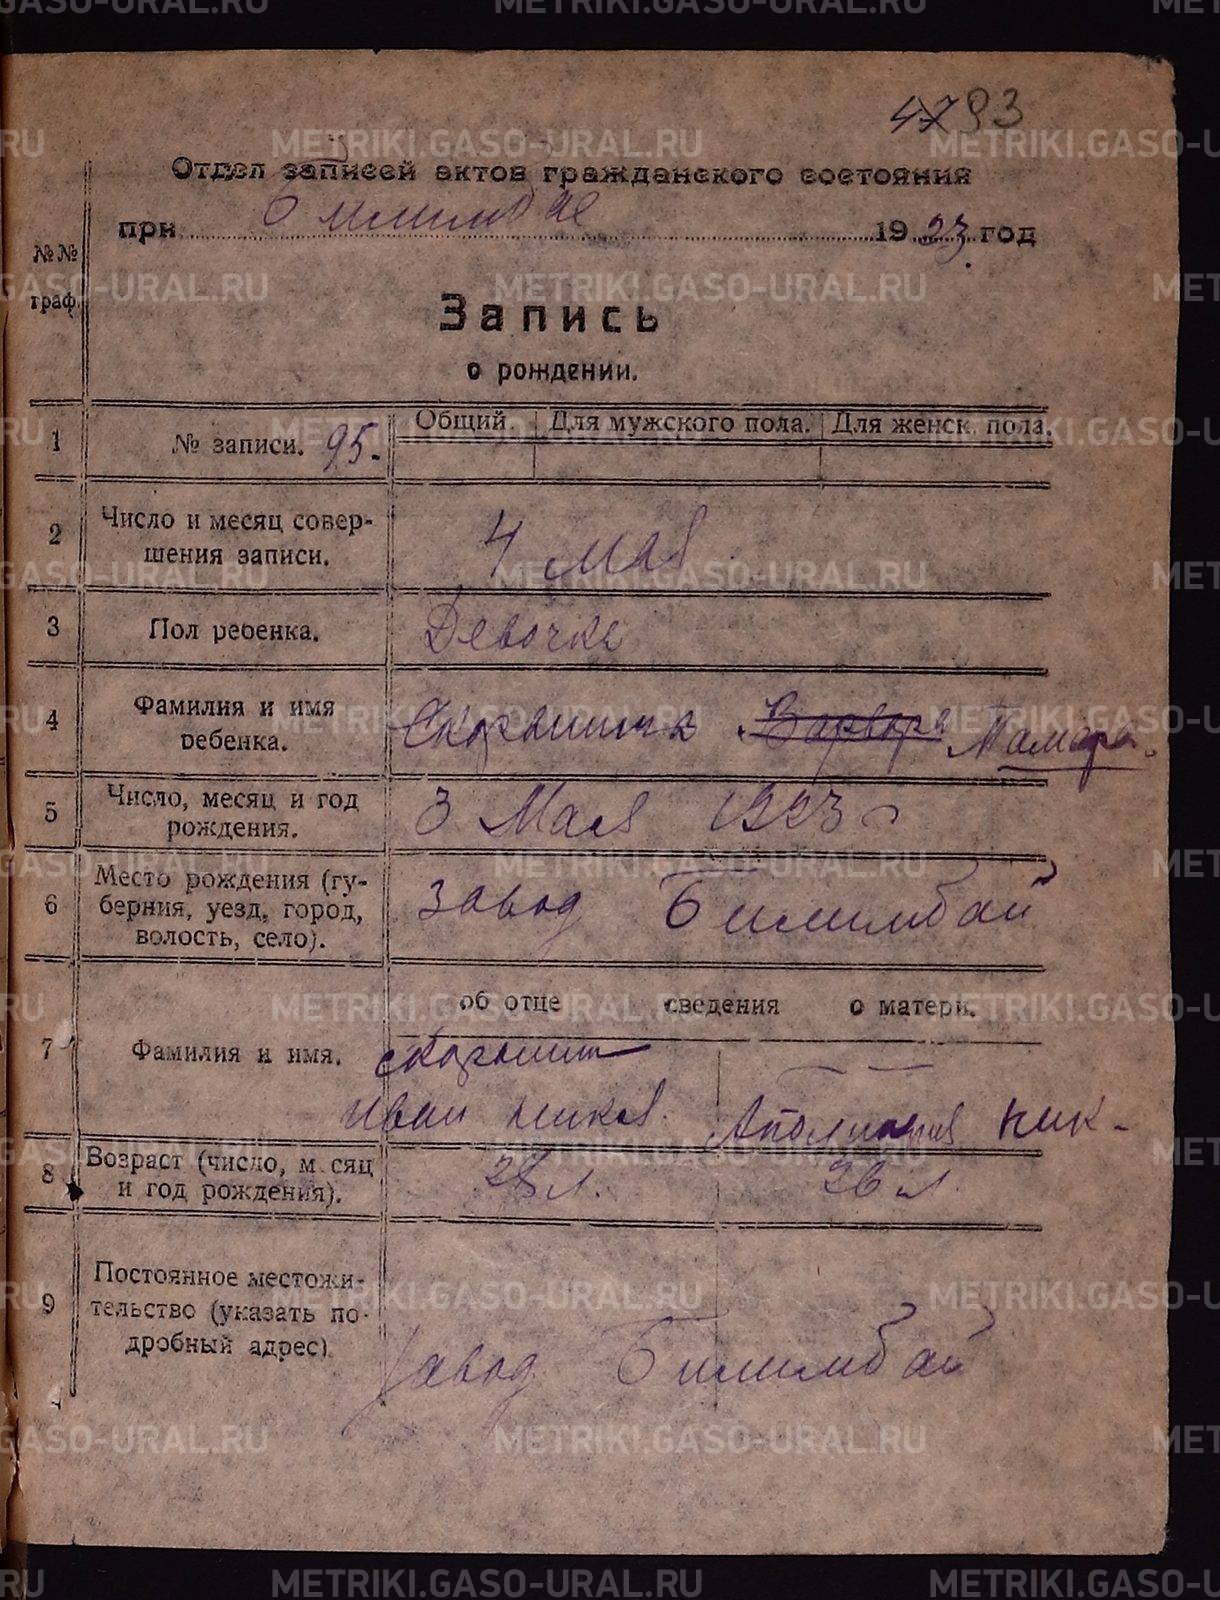 93
Отдел записей актов гражданского состояния
при Билимбае 1923 год
№№ граф.
Запись
о рождении.
1 № записи. 95. Общий. Для мужского пола. Для женск. пола.
2 Число и месяц совершения записи. 4 мая
3 Пол ребенка. Девочка
4 Фамилия и имя ребенка. Варвара Тамара.
5 Число, месяц и год рождения. 3 Мая 1923 г
6 Место рождения (губерния, уезд, город, волость, село). завод Билимбай
об отце сведения о матери.
7 Фамилия и имя.
Иван Аполинария Ник-
8 Возраст (число, м сяц и год рождения). 28 л. 26 л.
9 Постоянное местожительство (указать подробный адрес). завод Билимбай
METRIKI.GASO-URAL.RU